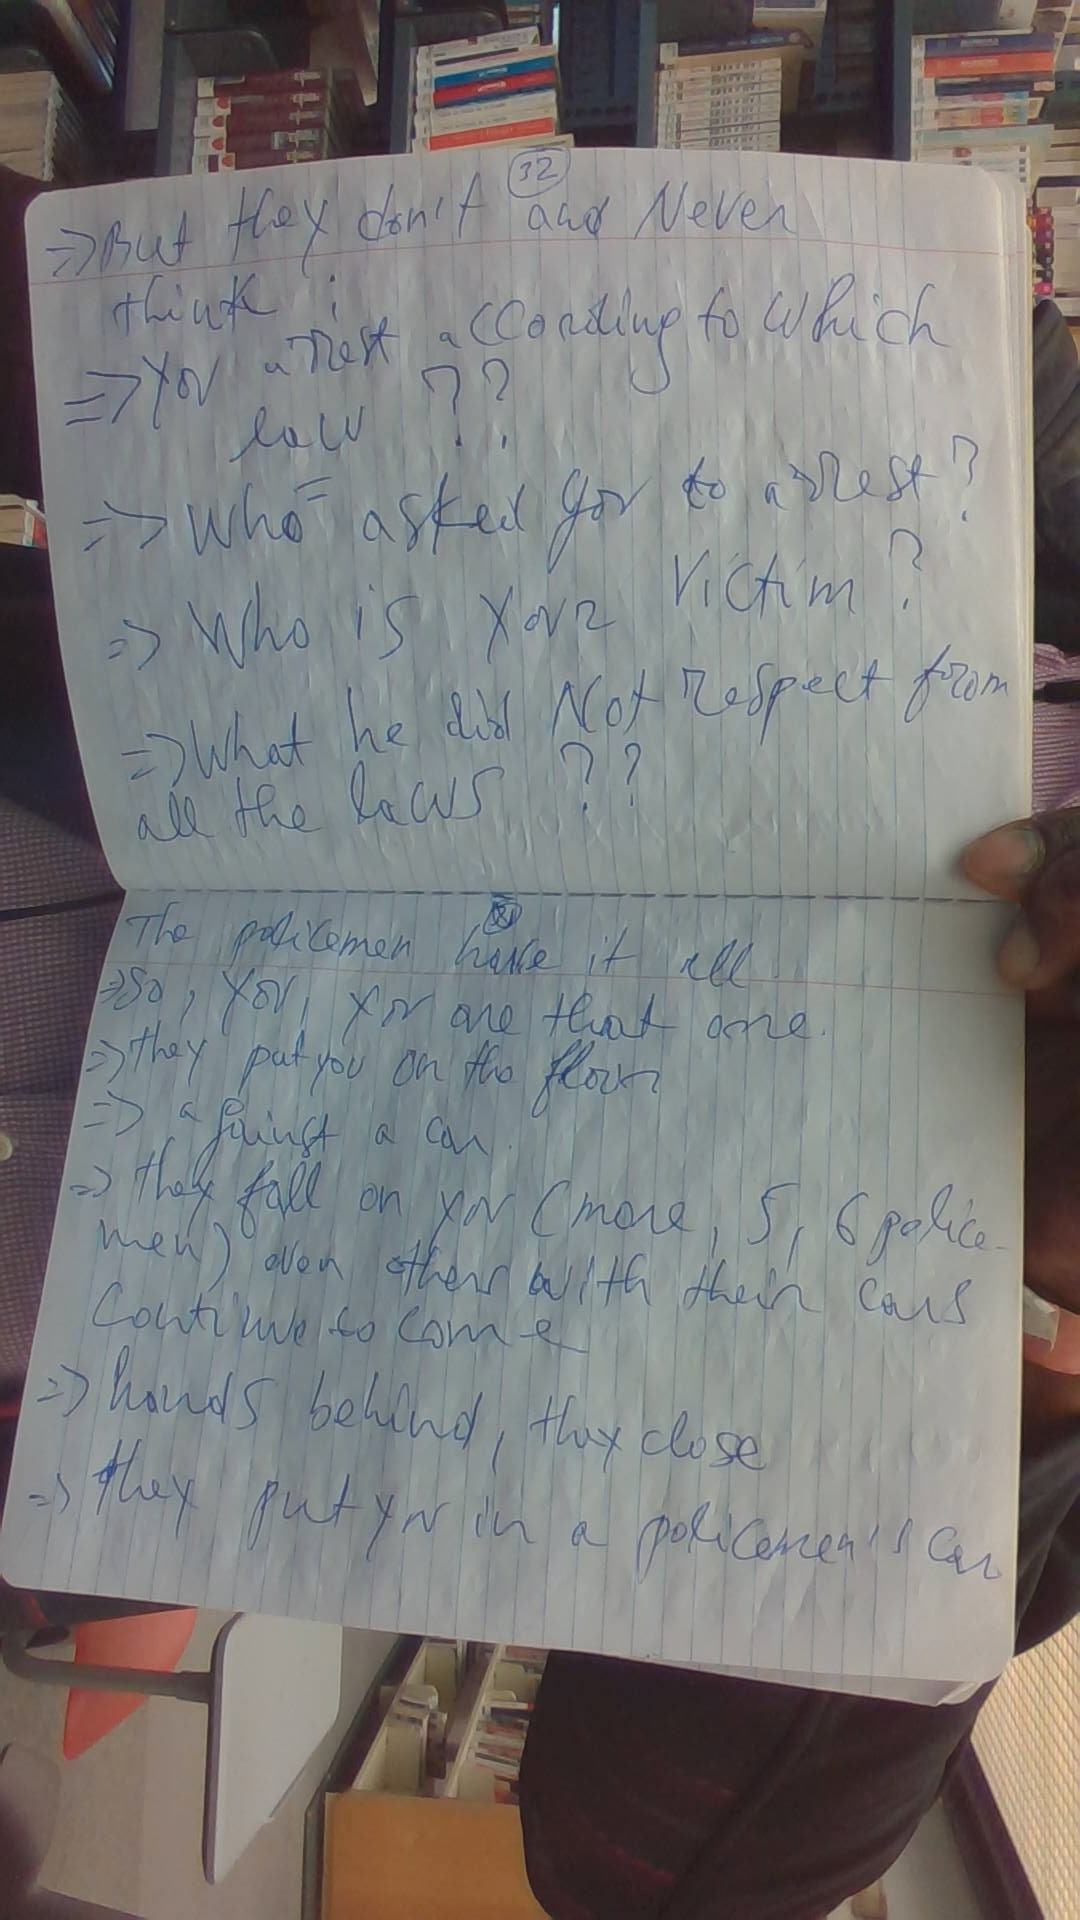 32
=> But they don't and Never
think :
=> You arrest according to which
law ??
=> Who asked you to arrest?
=> Who is your victim?
=> What he did Not respect from
all the laws ??
The policemen have it all.
=> So, you, you are that one.
=> they put you on the floor
=> against a car.
=> they fall on you (more, 5, 6 police-
men) even others with their cars
Continue to come
=> hands behind, they close
=> they put you in a policemen's car